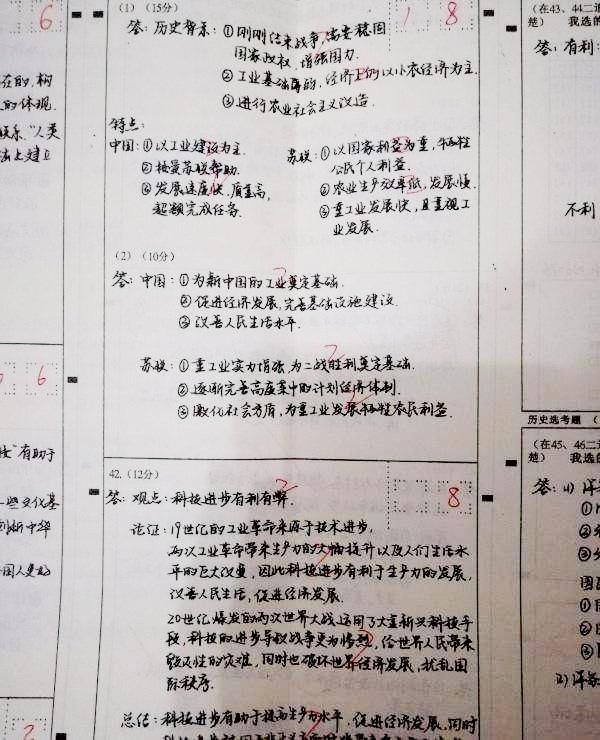 6
在的,构
的体现.
联系."人类
法上建立
6
按"有助于
一些文化基
中华
2
(1) (15分)
18
答: 历史背景: ①刚刚结束战争,需要稳固
国家政权,增强国力.
②工业基础薄弱,经济上仍以小农经济为主.
③进行农业社会主义改造.
特点:
中国:①以工业建设为主.
②接受苏联帮助.
③发展速度快,质量高,
超额完成任务.
苏联:①以国家利益为重,牺牲
公民个人利益.
②农业生产效率低,发展慢.
③重工业发展快,且重视工
业发展.
(2) (10分)
答: 中国: ①为新中国的工业奠定基础.
②促进经济发展,完善基础设施建设.
③改善人民生活水平.
苏联: ①重工业实力增强,为二战胜利奠定基础.
②逐渐完善高度集中的计划经济体制.
③激化社会矛盾,为重工业发展牺牲农民利益.
42. (12分)
8
答: 观点: 科技进步有利有弊.
论证: 19世纪的工业革命来源于技术进步,
两次工业革命带来生产力的大幅提升以及人们生活水
平的巨大改变,因此科技进步有利于生产力的发展,
改善人民生活,促进经济发展.
20世纪爆发的两次世界大战运用了大量新兴科技手
段,科技的进步导致战争更为惨烈,给世界人民带来
毁灭性的灾难,同时也破坏世界经济发展,扰乱国
际秩序.
总结: 科技进步有助于提高生产水平,促进经济发展,同时
(在43、44二
楚) 我选的
答: 有利:
不利
历史选考题 (
(在45、46二
楚) 我选的
答: 1)